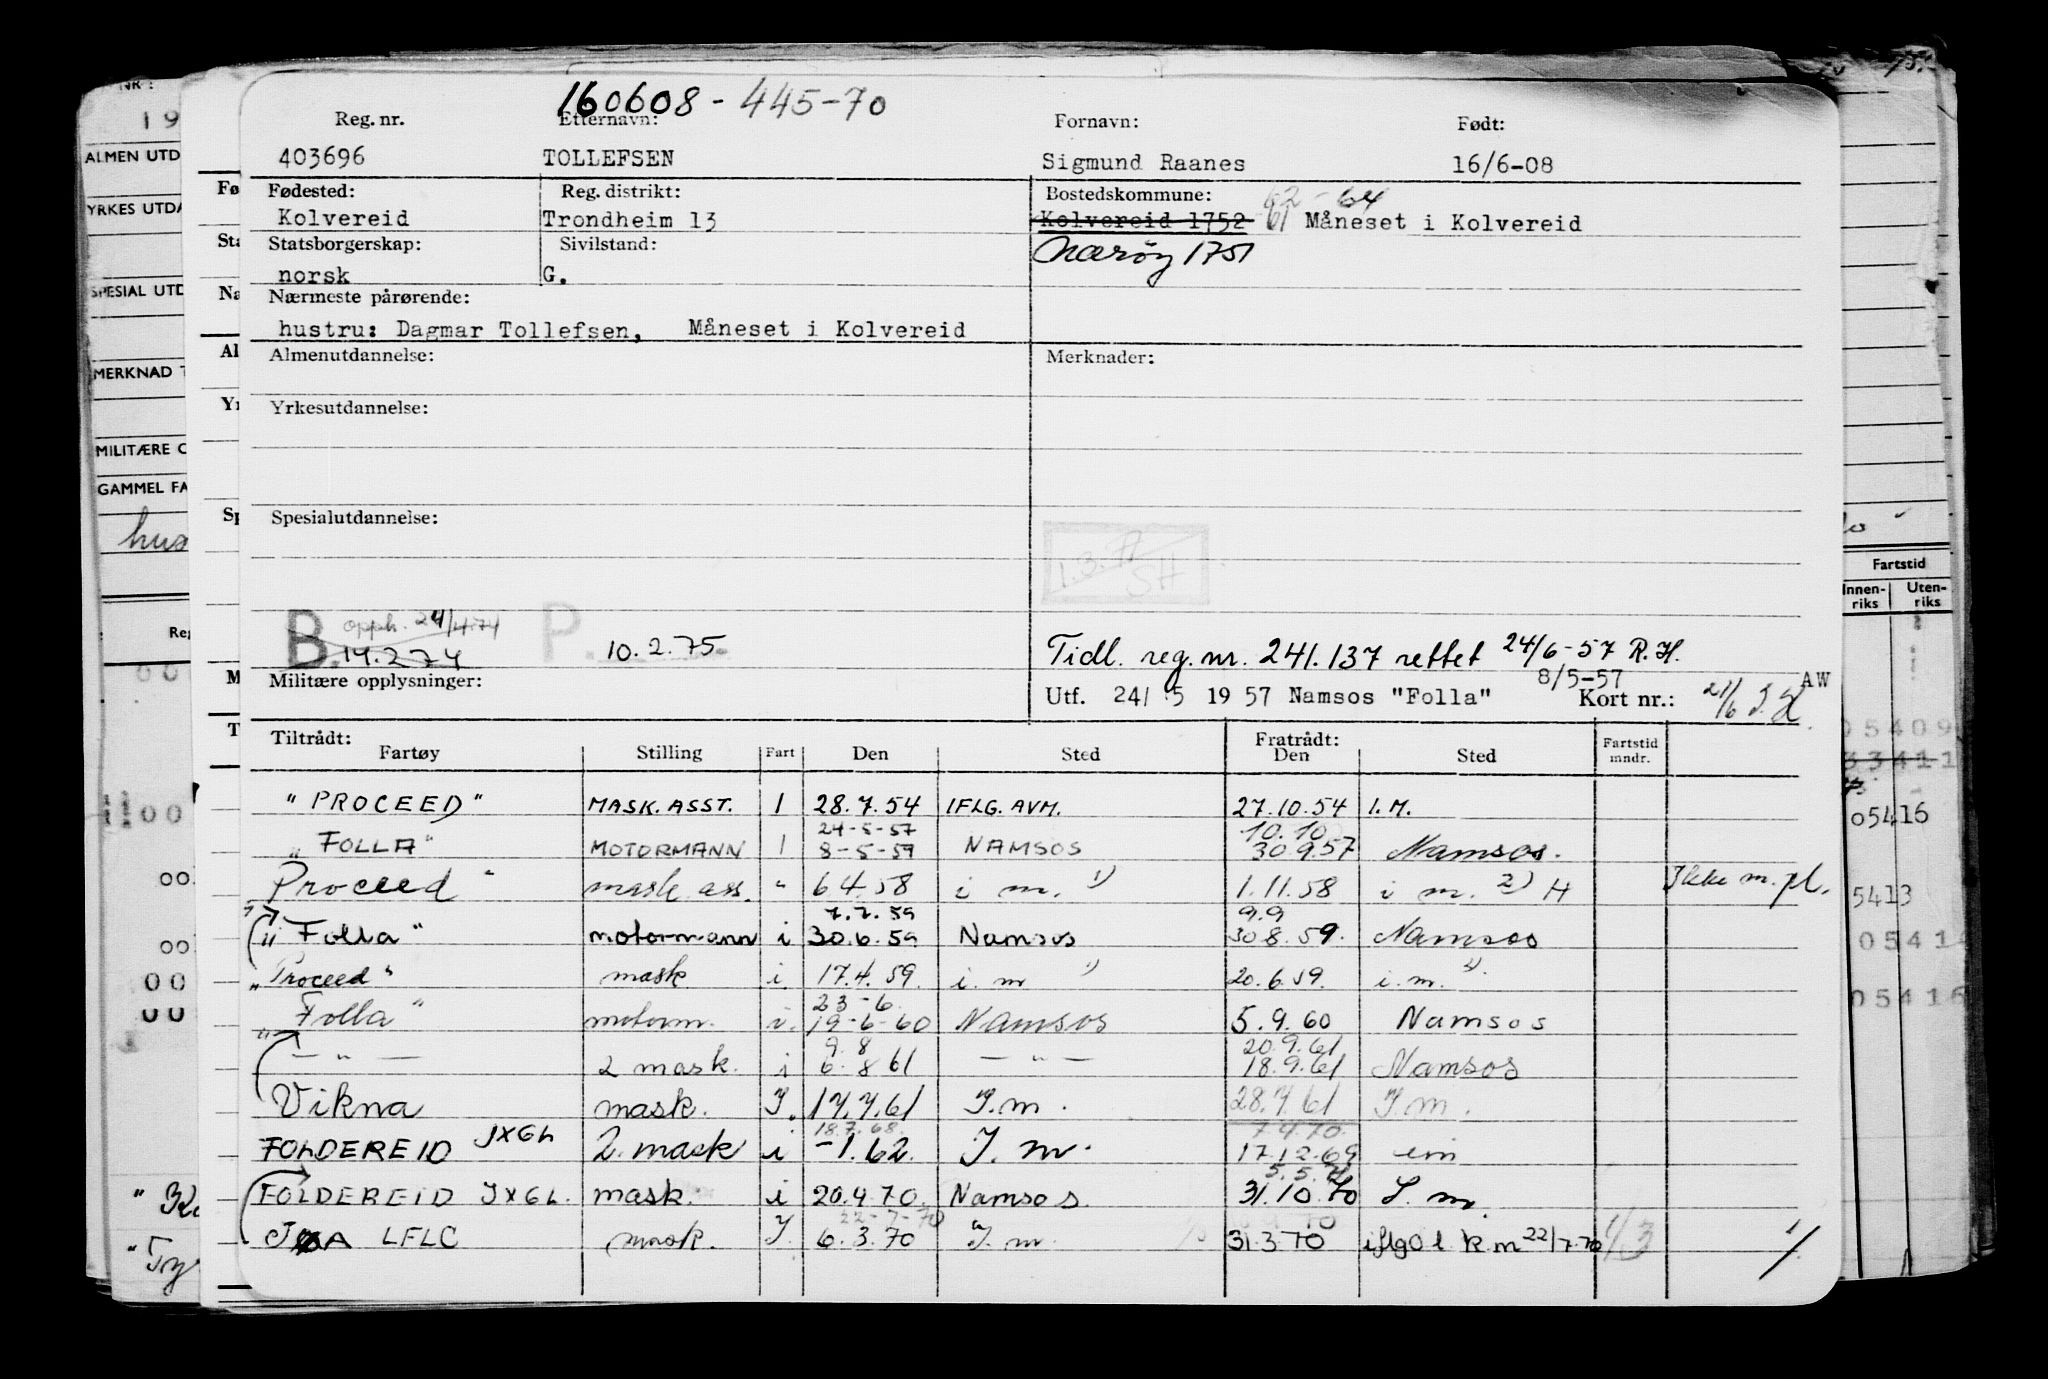 160608 - 445-70
Reg. nr. Etternavn: Fornavn: Født:
403696 TOLLEFSEN Sigmund Raanes 16/6-08
Fødested: Reg. distrikt: Bostedskommune: 62-64
Kolvereid Trondheim 13 Kolvereid 1752 -61 Måneset i Kolvereid
Statsborgerskap: Sivilstand: Nærøy 1751
norsk G.
Nærmeste pårørende:
hustru: Dagmar Tollefsen, Måneset i Kolvereid
Almenutdannelse: Merknader:
Yrkesutdannelse:
Spesialutdannelse:
1.3.77
SH
B. opph. 24/4.74 P.
14.2.74 10.2.75 Tidl. reg.nr. 241.137 rettet 24/6-57 R.H.
8/5-57
Militære opplysninger: Utf. 24/5 1957 Namsos "Folla" Kort nr.: AW
21/6
Tiltrådt: Fratrådt:
Fartøy Stilling Fart Den Sted Den Sted Fartstid mndr.
"PROCEED" MASK. ASST. I 28.7.54 IFLG. AVM. 27.10.54 I.M.
24-5-57 10.10
"FOLLA" MOTORMANN I 8-5-57 NAMSOS 30.9.57 Namsos.
Proceed " mask. ass. " 6.4.58 i m. 1) 1.11.58 i m. 2) H Ikke m. pl.
7.7.59 9.9
"Folla" motormann i 30.6.59 Namsos 30.8.59. Namsos
"Proceed" mask i. 17.4.59. i. m 1) 20.6.59. i. m. 2)
23-6.
"Folla" motorm. i. 19-6-60 Namsos 5.9.60 Namsos
9.8 20.9.61
— " — 2 mask. i 6.8.61 — " — 18.9.61 Namsos
Vikna mask. I. 17.7.61 I.m. 28.7.61 I m.
18.7.68. 7.4.70.
FOLDEREID JXGL 2. mask i -1.62. I. m. 17.12.69 im
5.5.71
FOLDEREID JXGL. mask. i 20.4.70. Namsos. 31.10.70 I. m.
22-7-70
LFLC mask. I. 6.3.70 I. m. 31.3.70 iflg O l. k. m 22/7.70 1/3 1/.
NR:
19
ALMEN UTD
YRKES UTDA
SPESIAL UTD
MERKNAD T
MILITÆRE O
GAMMEL FA
hus
Reg
Fø
Sta
Na
Al
Yr
Sp
M
T
Fartstid
Innen-riks Uten-riks
05409
33411
05416
5413
0541
05416